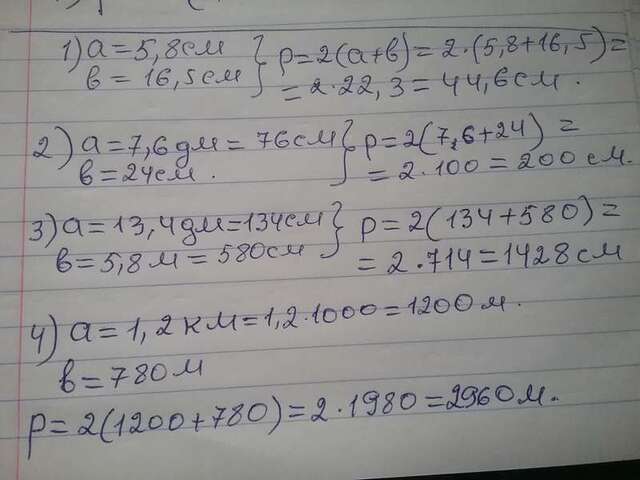 1) а = 5,8см
в = 16,5см } р = 2(а+в) = 2·(5,8+16,5) =
= 2·22,3 = 44,6см.
2) а = 7,6дм = 76см
в = 24см. } р = 2(7,6+24) =
= 2·100 = 200 см.
3) а = 13,4дм = 134см
в = 5,8м = 580см } р = 2(134+580) =
= 2·714 = 1428 см
4) а = 1,2км = 1,2·1000 = 1200м.
в = 780м
р = 2(1200+780) = 2·1980 = 2960м.